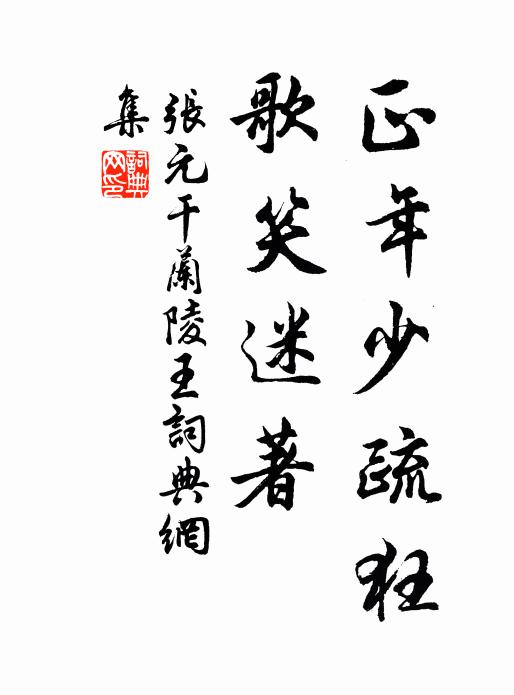 正年少疏狂
歌笑迷著
張元干蘭陵王詞典網
集
詞典
网印